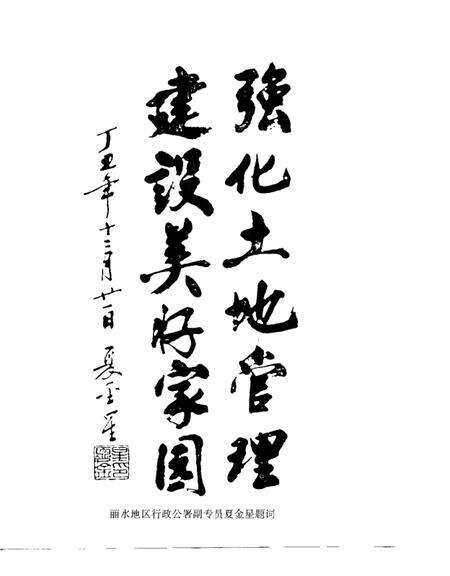 强化土地管理
建设美好家园
丁丑年十二月廿一日 夏金星
丽水地区行政公署副专员夏金星题词